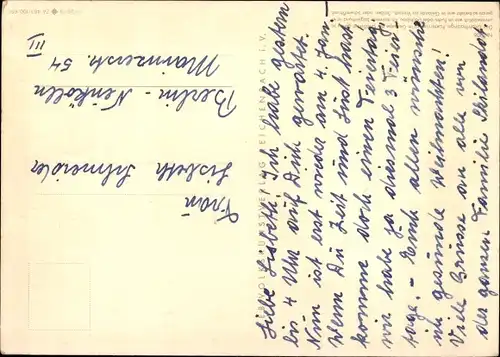 Liebe Lisbeth! Ich habe gestern
bis 4 Uhr auf Dich gewartet.
Nun ist erst wieder am 4. Jan.
Wenn Du Zeit und Lust hast
komme doch einen Feiertag,
wir habe ja diesmal 3 Feier-
tage. - Euch allen wünsche
wir gesunde Weihnachten!
Viele Grüsse an alle von
der ganzen Familie
Frau
Lisbeth Schneider
Berlin - Neukölln
Mainzerstr. 54
III
VOLKSKUNSTVERLAG REICHENBACH I. V.